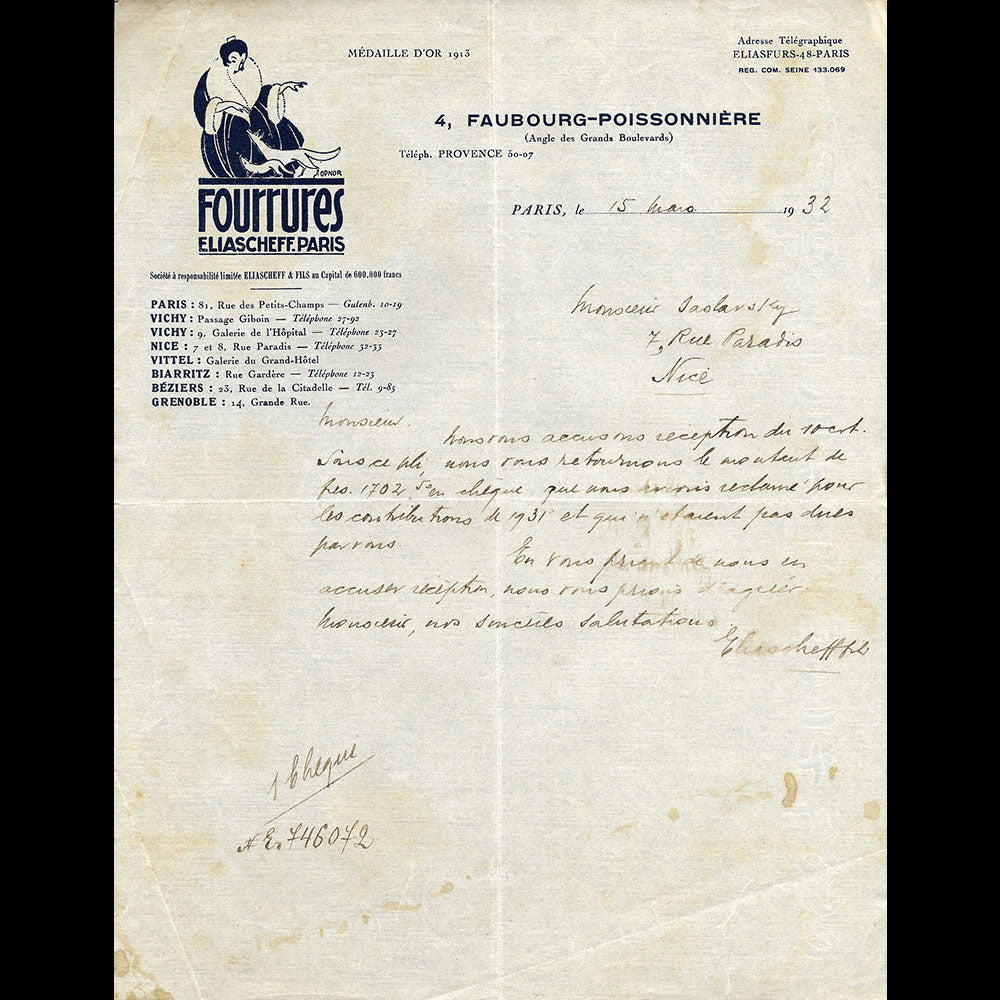 MÉDAILLE D'OR 1913
Adresse Télégraphique
ELIASFURS-48-PARIS
REG. COM. SEINE 133.069
4, FAUBOURG-POISSONNIÈRE
(Angle des Grands Boulevards)
Téléph. PROVENCE 50-07
ODNOR
FOURRURES
ELIASCHEFF.PARIS
Société à responsabilité limitée ELIASCHEFF & FILS au Capital de 600.000 francs
PARIS : 81, Rue des Petits-Champs — Gutenb. 10-19
VICHY : Passage Giboin — Téléphone 27-92
VICHY : 9, Galerie de l'Hôpital — Téléphone 23-27
NICE : 7 et 8, Rue Paradis — Téléphone 32-33
VITTEL : Galerie du Grand-Hôtel
BIARRITZ : Rue Gardère — Téléphone 12-23
BÉZIERS : 23, Rue de la Citadelle — Tél. 9-85
GRENOBLE : 14, Grande Rue.
PARIS, le 15 Mars 1932
Monsieur Saslavsky
7, Rue Paradis
Nice
Monsieur.
Nous vous accusons reception du 10 crt.
Sous ce pli, nous vous retournons le montant de
frs. 1702 50 en chèque, que nous avions reclamé pour
les contributions de 1931 et qui n'etaient pas dues
par vous.
En vous priant de nous en
accuser réception, nous vous prions d'agréer
Monsieur, nos sincères salutations.
Eliascheff fils
1 Chèque
N E. 746072